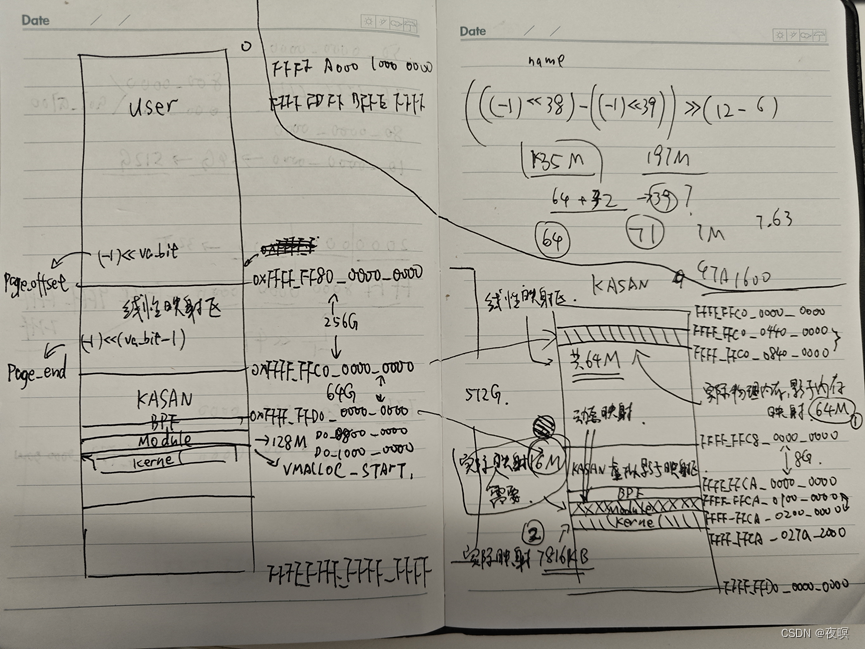 Date / /
0
FFFF A000 1000 0000
user
(-1)<<va_bit
Page_offset
0xFFFF_FF80_0000_0000
线性映射区
256G
(-1)<<(va_bit-1)
Page_end
0xFFFF_FFC0_0000_0000
64G
KASAN
BPF
0xFFFF_FFD0_0000_0000
Module
→128M
D0_0800_0000
Kernel
D0_1000_0000
VMALLOC_START.
FFFF_FFFF_FFFF_FFFF
Date / /
name
(((-1)<<38)-((-1)<<39))>>(12-6)
135M
197M
64+72→39?
64
71
7M
7.63
47A1600
线性映射区
KASAN
FFFF_FFC0_0000_0000
FFFF_FFC0_0440_0000
FFFF_FFC0_0840_0000
共64M
实际物理内存,影子内存
映射 64M
1
512G.
动态映射
FFFF_FFC8_0000_0000
实际映射 16M
KASAN 虚拟影子映射区.
8G.
FFFF_FFCA_0000_0000
需要
BPF
FFFF_FFCA_0100_0000
Module
FFFF_FFCA_0200_0000
Kernel
2
FFFF_FFCA_027A_2000
实际映射 7816KB
FFFF_FFD0_0000_0000
CSDN @夜暝